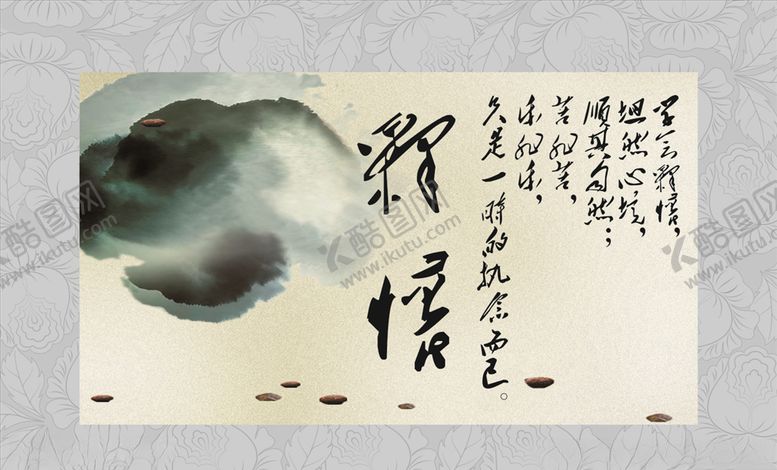 釋懷
学会釋懷，
坦然心境，
順其自然；
苦非苦，
乐非乐，
只是一時的执念而已。
酷图网
www.ikutu.com
酷图网
www.ikutu.com
酷图网
www.ikutu.com